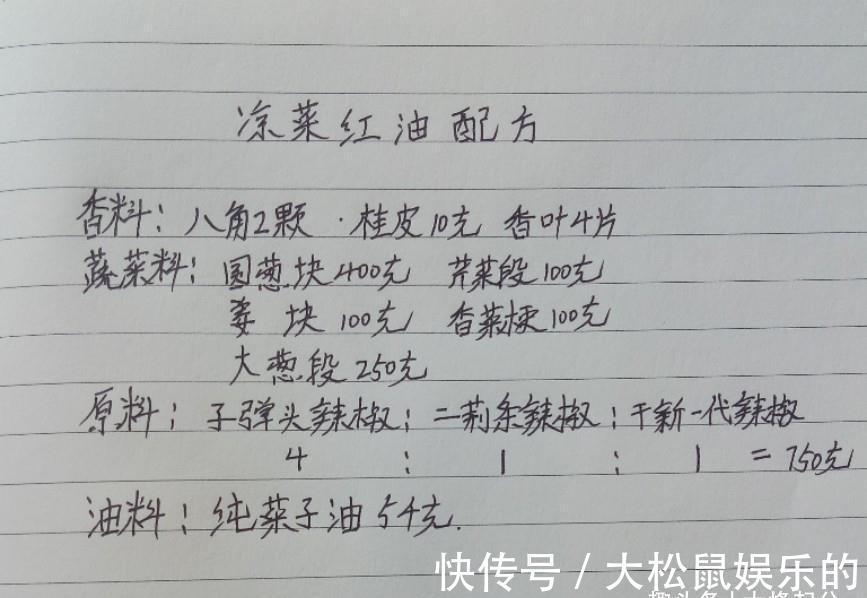 凉菜红油配方
香料：八角2颗 · 桂皮10克 香叶4片
蔬菜料：圆葱块400克 芹菜段100克
姜 块 100克 香菜梗100克
大葱段250克
原料：子弹头辣椒：二荆条辣椒：干新一代辣椒
4 : 1 : 1 = 750克
油料：纯菜子油54克.
快传号 / 大松鼠娱乐的